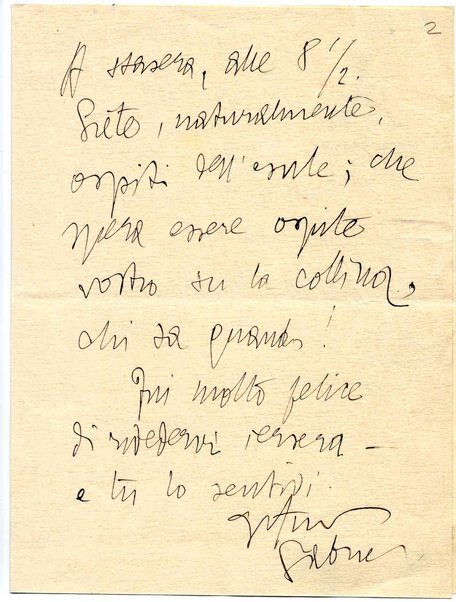 2
A stasera, alle 8 1/2.
Siete, naturalmente,
ospiti dell'esule; che
spera essere ospite
vostro su la collina,
chi sa quando!
Fui molto felice
di rivedervi iersera –
e tu lo sentivi.
Gabriel